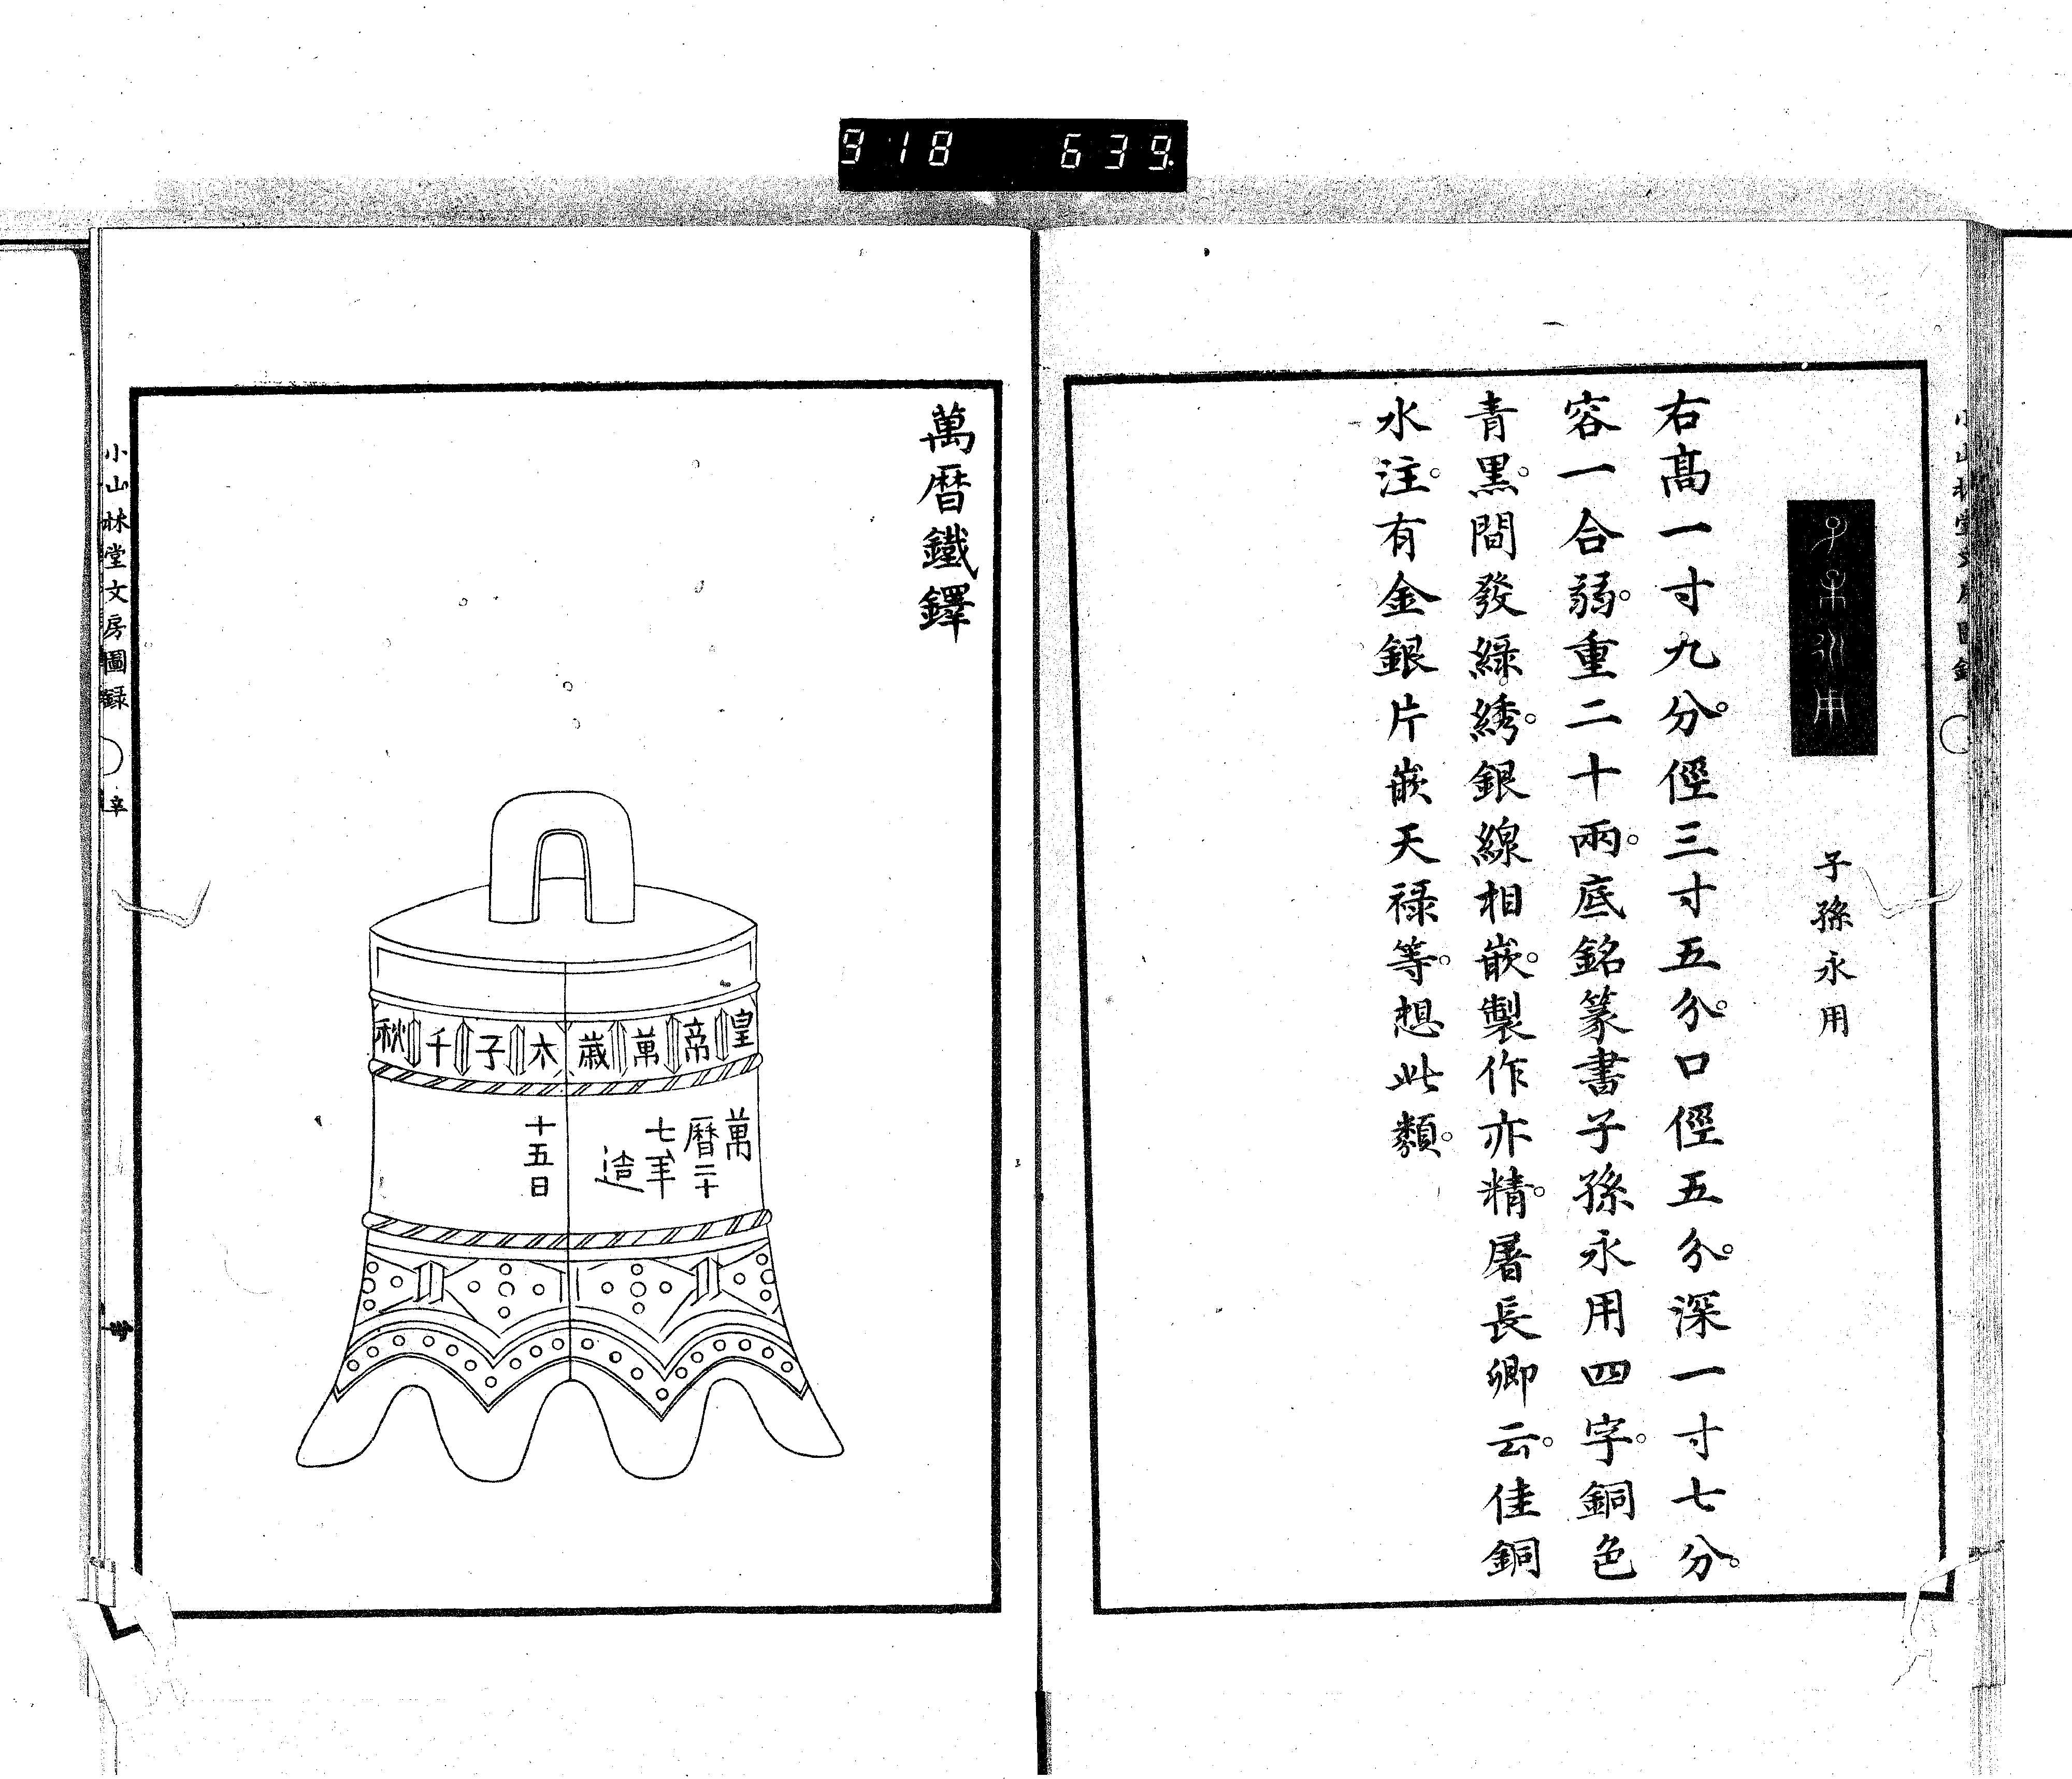 918 639
子孫永用
子孫永用
右高一寸九分。徑三寸五分。口徑五分。深一寸七分。
容一合弱。重二十兩。底銘篆書子孫永用四字。銅色
青黑。間發綠綉。銀線相嵌。製作亦精。屠長卿云。佳銅
水注。有金銀片嵌天祿等。想此類。
萬曆鐵鐸
皇帝萬歲太子千秋
萬
曆二十
七年
造
十五日
小山林堂文房圖錄 辛